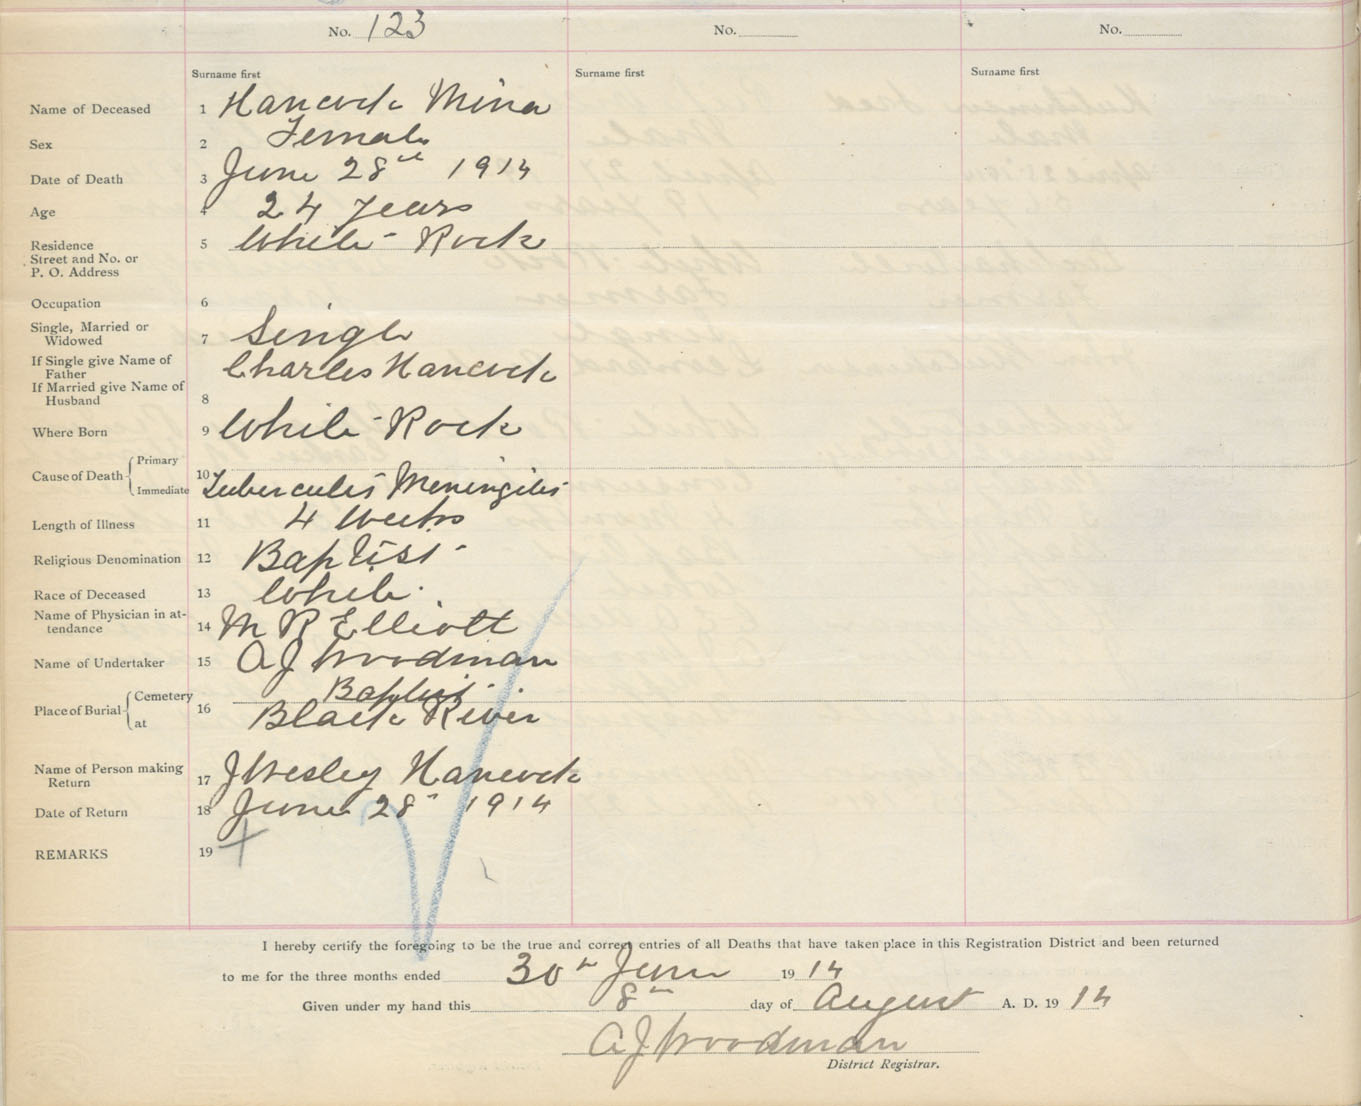 No. 123 No. No.
Surname first Surname first Surname first
Name of Deceased 1 Hancock Mina
Sex 2 Female
Date of Death 3 June 28th 1914
Age 4 24 years
Residence 5 White Rock
Street and No. or
P. O. Address
Occupation 6
Single, Married or
Widowed 7 Single
If Single give Name of
Father Charles Hancock
If Married give Name of
Husband 8
Where Born 9 White Rock
Cause of Death { Primary
Immediate 10 Tubercules Meningitis
Length of Illness 11 4 weeks
Religious Denomination 12 Baptist
Race of Deceased 13 White
Name of Physician in at-
tendance 14 M R Elliott
Name of Undertaker 15 A J Woodman
Place of Burial { Cemetery Baptist
at 16 Black River
Name of Person making
Return 17 J Wesley Hancock
Date of Return 18 June 28" 1914
REMARKS 19
I hereby certify the foregoing to be the true and correct entries of all Deaths that have taken place in this Registration District and been returned
to me for the three months ended 30th June 1914
Given under my hand this 8th day of August A. D. 1914
A J Woodman
District Registrar.